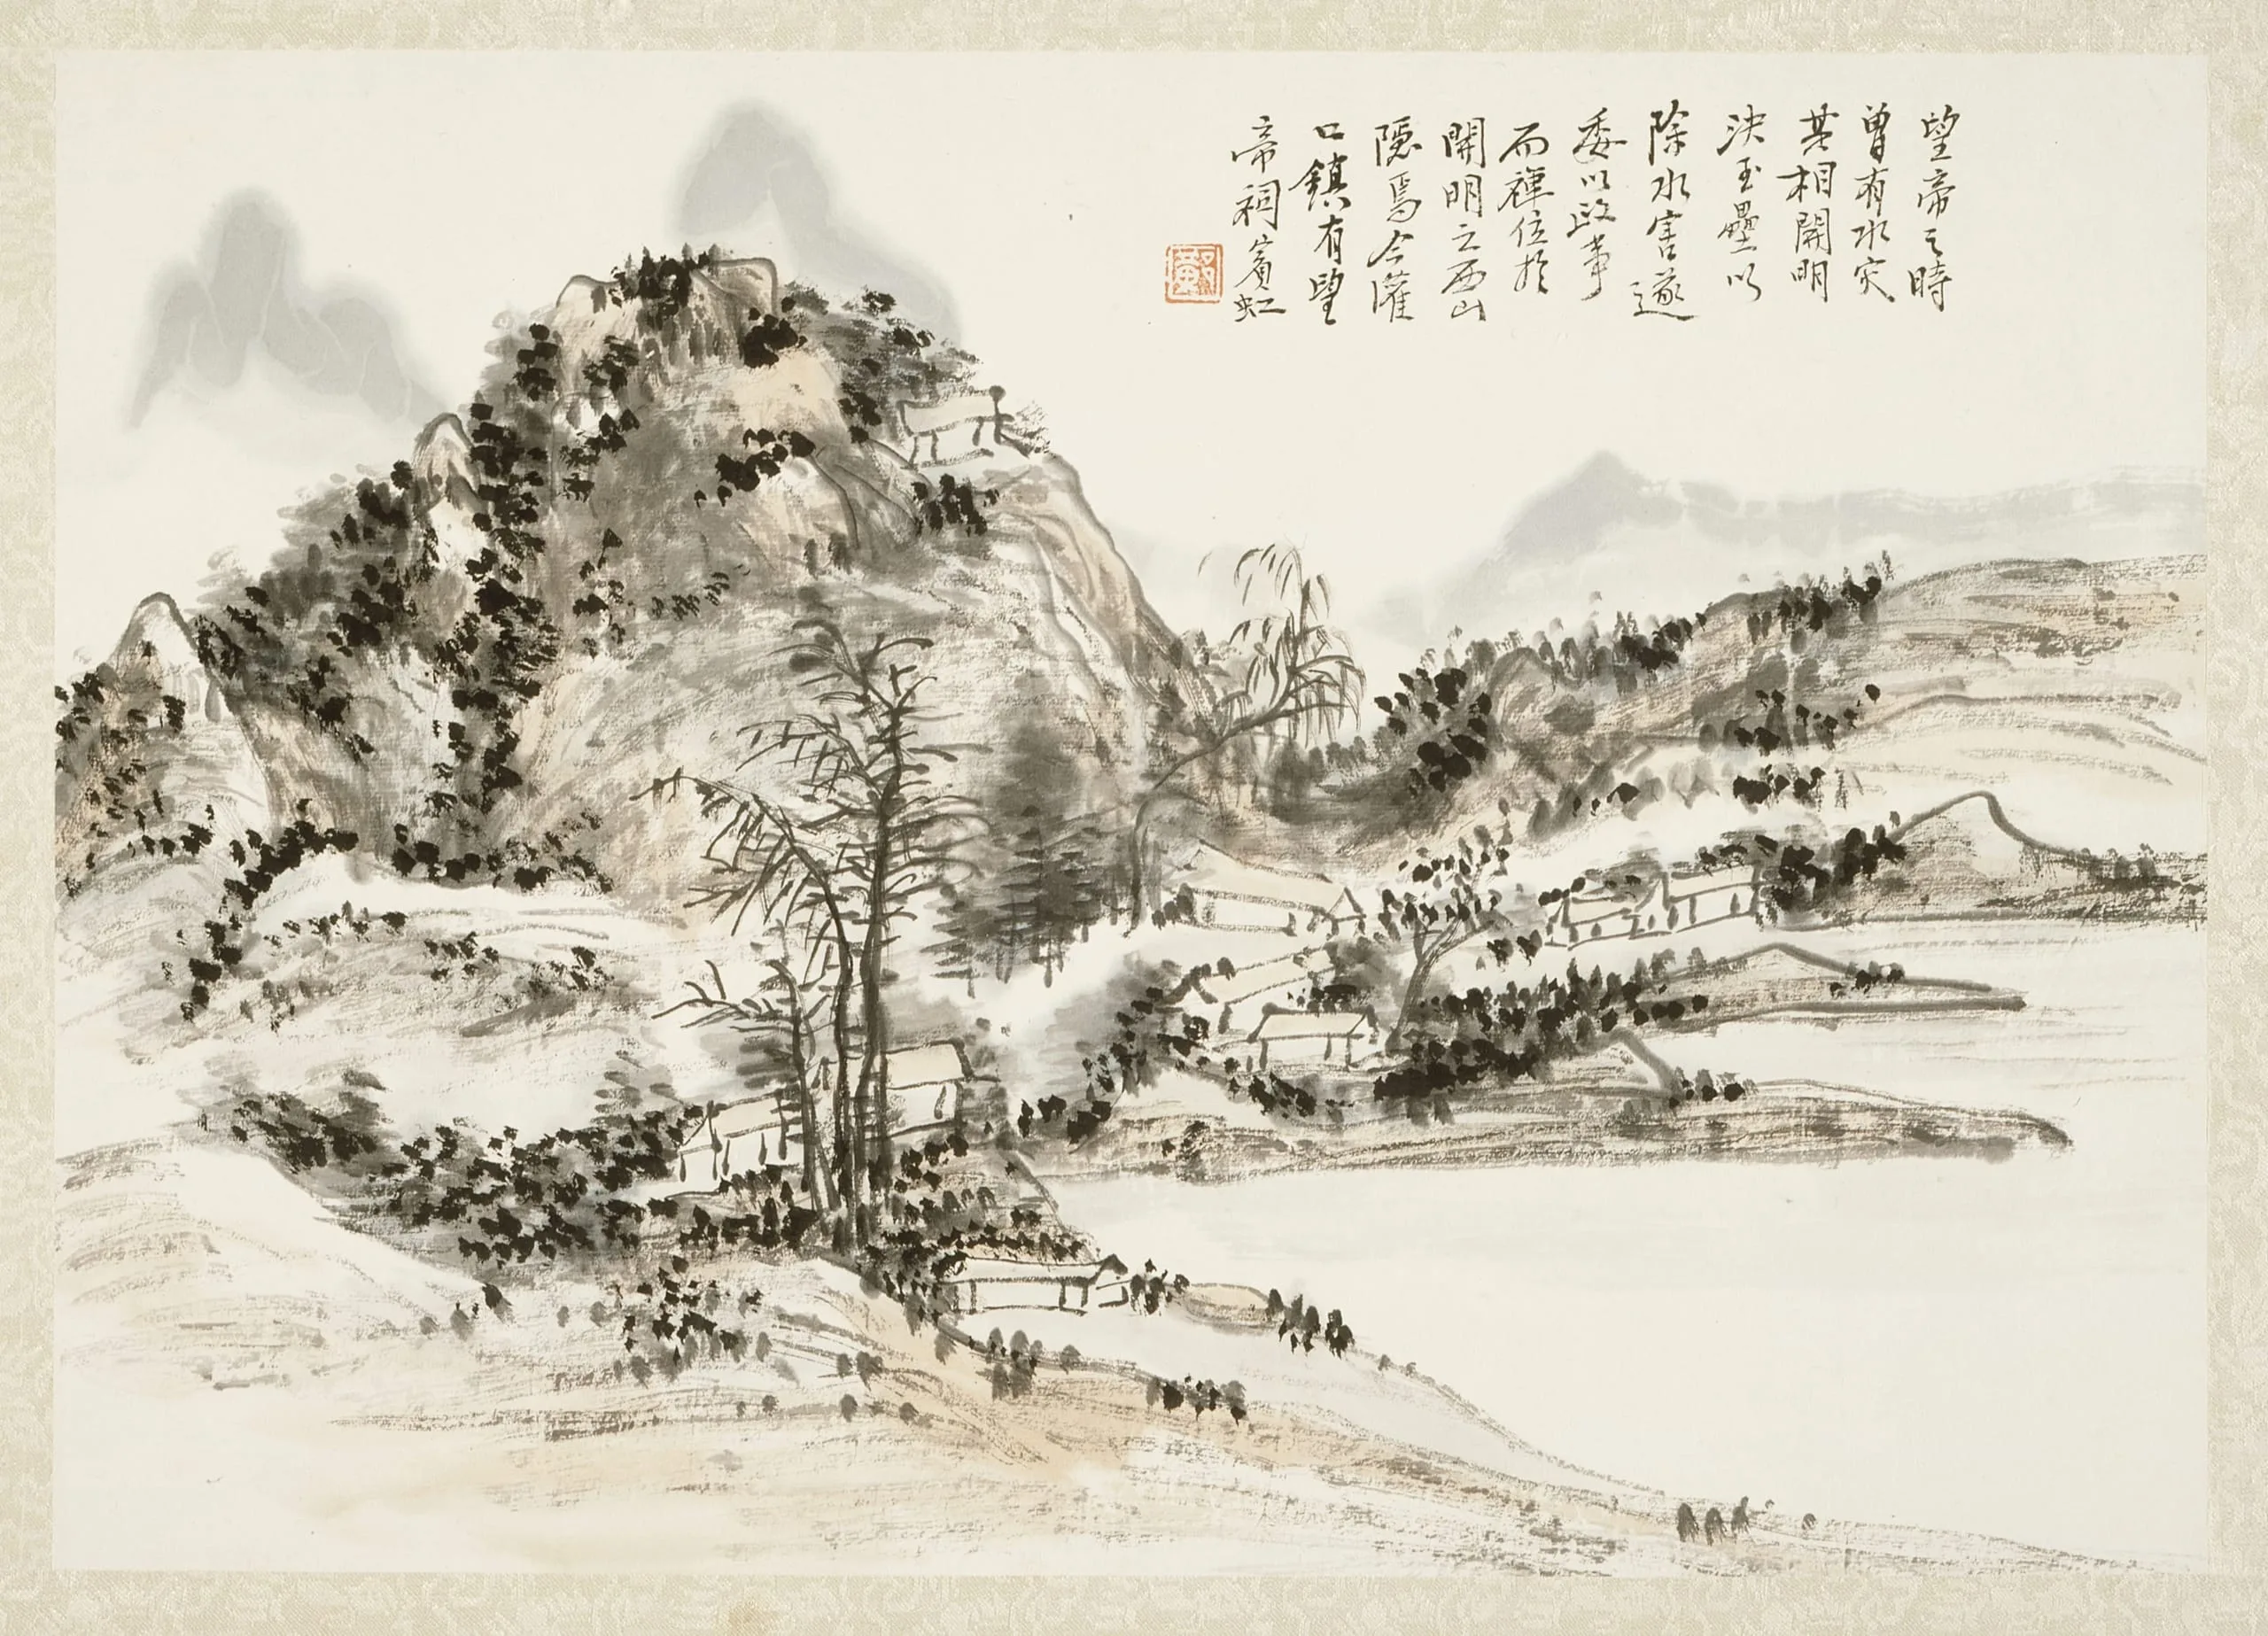 望帝之時
曾有水灾
其相開明
决玉壘以
除水害遂
委以政事
而禪位於
開明之西山
隱焉今灌
口鎮有望
帝祠賓虹